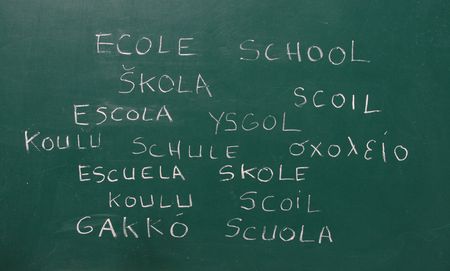 ECOLE SCHOOL
ŠKOLA
SCOIL
ESCOLA YSGOL
KOULU SCHULE σχολείο
ESCUELA SKOLE
KOULU SCOIL
GAKKÓ SCUOLA